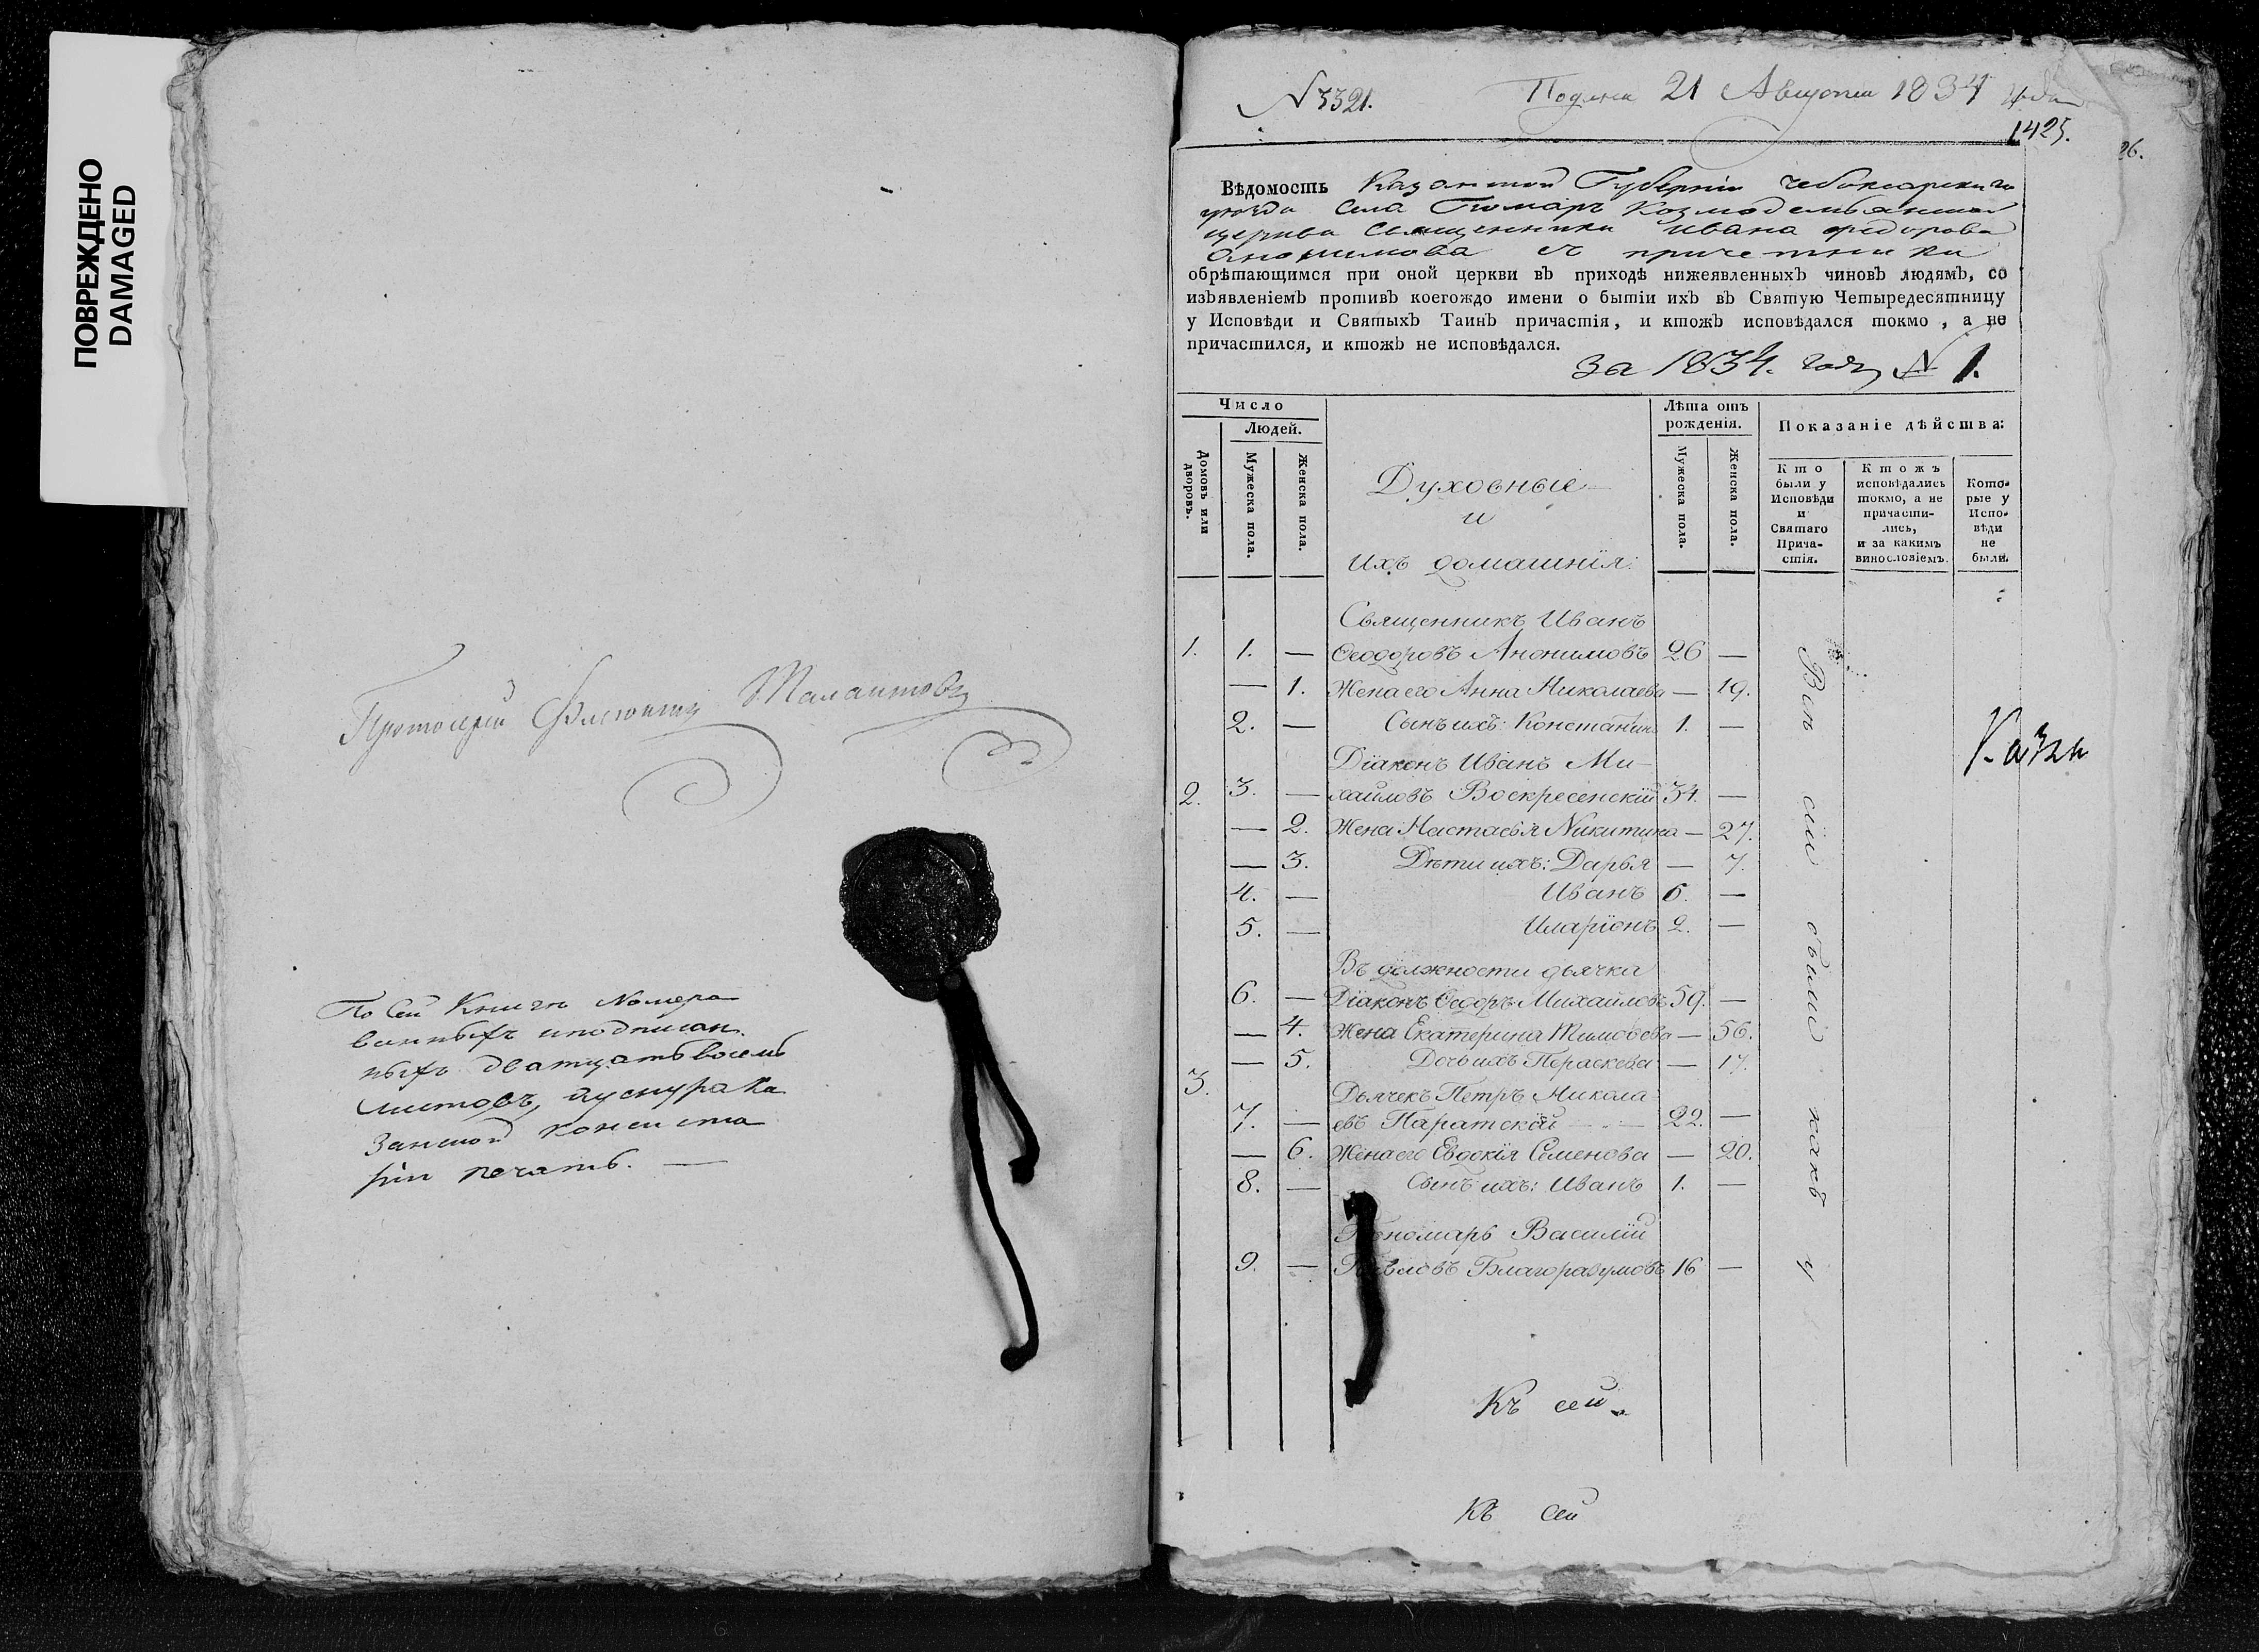 ПОВРЕЖДЕНО
DAMAGED
Протоіерей Талантовъ
По сей Книгѣ Номеро
ванныхъ и подписан
ныхъ дватцать восемь
листовъ, а у снура Ка
занской консисто
ріи печать. —
N 3321. Подана 21 Августа 1834 года
1425.
26.
Вѣдомость Казанской Губерніи Чебоксарскаго
уѣзда села Космодемьянской
церкви Священника Ивана Федорова
Анонимова съ причетники
обрѣтающимся при оной церкви въ приходѣ нижеявленныхъ чиновъ людямъ, со
изъявленіемъ противъ коегождо имени о бытіи ихъ въ Святую Четыредесятницу
у Исповѣди и Святыхъ Таинъ причастія, и ктожъ исповѣдался токмо, а не
причастился, и ктожъ не исповѣдался.
за 1834. годъ N 1.
Число
Людей.
Домовъ или дворовъ.
Мужеска пола.
Женска пола.
Духовныя
и
ихъ домашнія:
Лѣта отъ
рожденія.
Мужеска пола.
Женска пола.
Показаніе дѣйства:
Кто
были у
Исповѣди
и
Святаго
Прича-
стія.
Ктожъ
исповѣдались
токмо, а не
причасти-
лись,
и за какимъ
винословіемъ.
Кото-
рые у
Испо-
вѣди
не
были.
Священникъ Иванъ
1. 1. — Ѳеодоровъ Анонимовъ 26 —
— 1. Жена его Анна Николаева — 19.
2. — Сынъ ихъ: Константинъ 1. —
Діаконъ Иванъ Ми-
2. 3. — хайловъ Воскресенскій 34. —
— 2. Жена Настасья Никитина — 27.
— 3. Дѣти ихъ: Дарья — 7.
4. — Иванъ 6. —
5. — Иларіонъ 2. —
Въ должности дьячка
6. — Діаконъ Ѳедоръ Михайловъ 59. —
— 4. Жена Екатерина Тимофеева — 56.
— 5. Дочь ихъ Пераскева — 17.
3. Дьячекъ Петръ Никола
7. — евъ Паратской — 22. —
— 6. Жена его Евдокія Семенова — 20.
8. — Сынъ ихъ: Иванъ 1. —
Пономарь Василій
9. — Павловъ Благоразумовъ 16 —
Всѣ сіи были какъ у
Каза
Къ сей
Къ сей